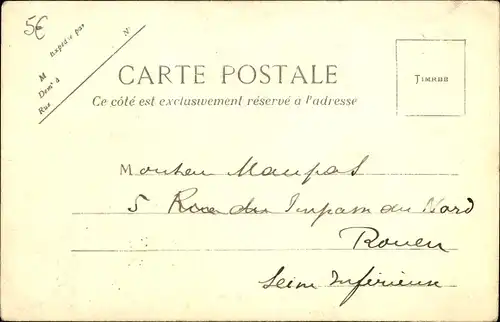 5€
Expédié par
M
Demt à
Rue
No
CARTE POSTALE
Ce côté est exclusivement réservé a l'adresse
TIMBRE
Monsieur Maupas
5 Rue du Impasse du Nord
Rouen
Seine Inférieure